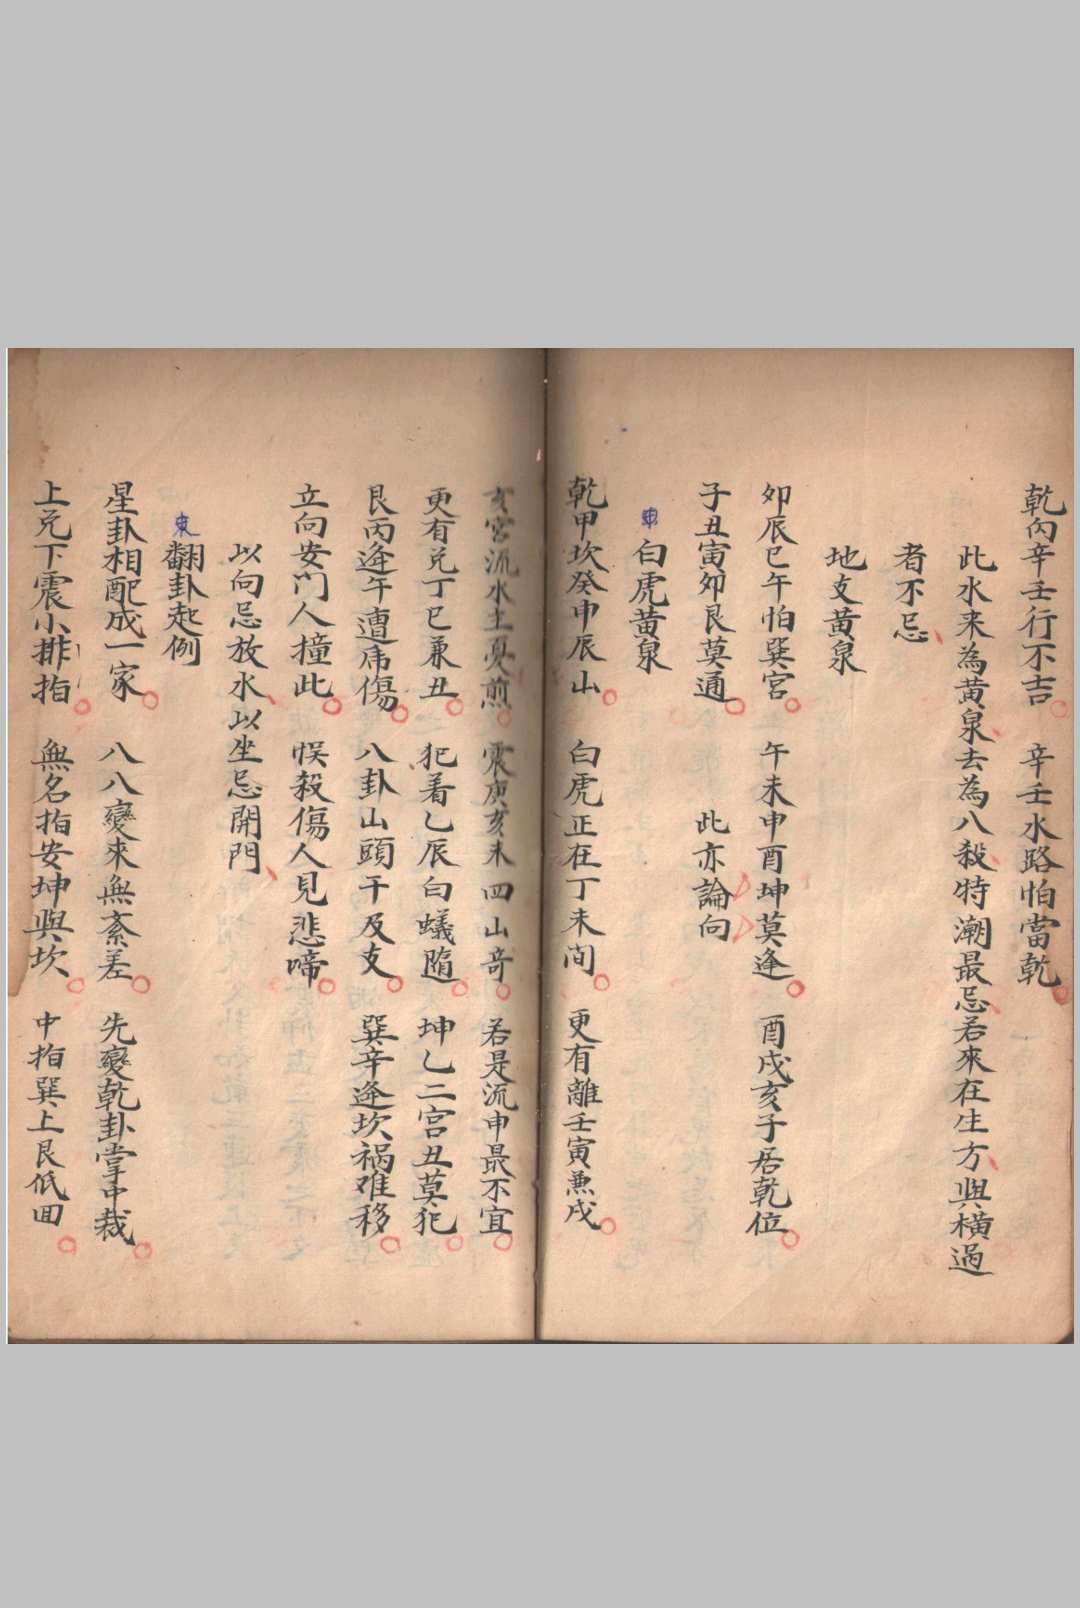 乾丙辛壬行不吉 辛壬水路怕當乾
此水来為黄泉去為八殺特潮最忌若來在生方與橫過
者不忌
地支黄泉
卯辰巳午怕巽宮 午未申酉坤莫逢 酉戌亥子居乾位
子丑寅卯艮莫通 此亦論向
白虎黄泉
乾甲坎癸申辰山 白虎正在丁未间 更有離壬寅兼戌
亥宮流水主憂煎 震庚亥未四山奇 若是流申最不宜
更有兑丁巳兼丑 犯着乙辰白蟻隨 坤乙二宮丑莫犯
艮丙逢午遭虎傷 八卦山頭干及支 巽辛逢坎禍难移
立向安门人撞此 悮殺傷人見悲啼
以向忌放水以坐忌開門
翻卦起例
星卦相配成一家 八八變來無紊差 先變乾卦掌中裁
上兑下震小排指 無名指安坤與坎 中指巽上艮低囬